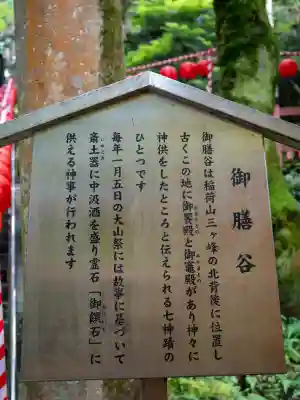 御膳谷
御膳谷は稲荷山三ヶ峰の北背後に位置し
古くこの地に御饗殿と御竈殿があり神々に
神供をしたところと伝えられる七神蹟の
ひとつです
毎年一月五日の大山祭には故事に基づいて
斎土器に中汲酒を盛り霊石「御饌石」に
供える神事が行われます